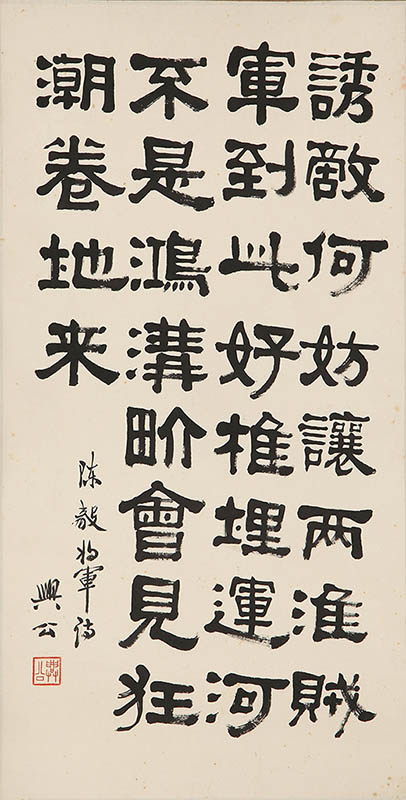 誘敵何妨讓两淮賊
軍到此好椎埋運河
不是鴻溝畍會見狂
潮卷地来
陈毅将軍诗
興公
興公